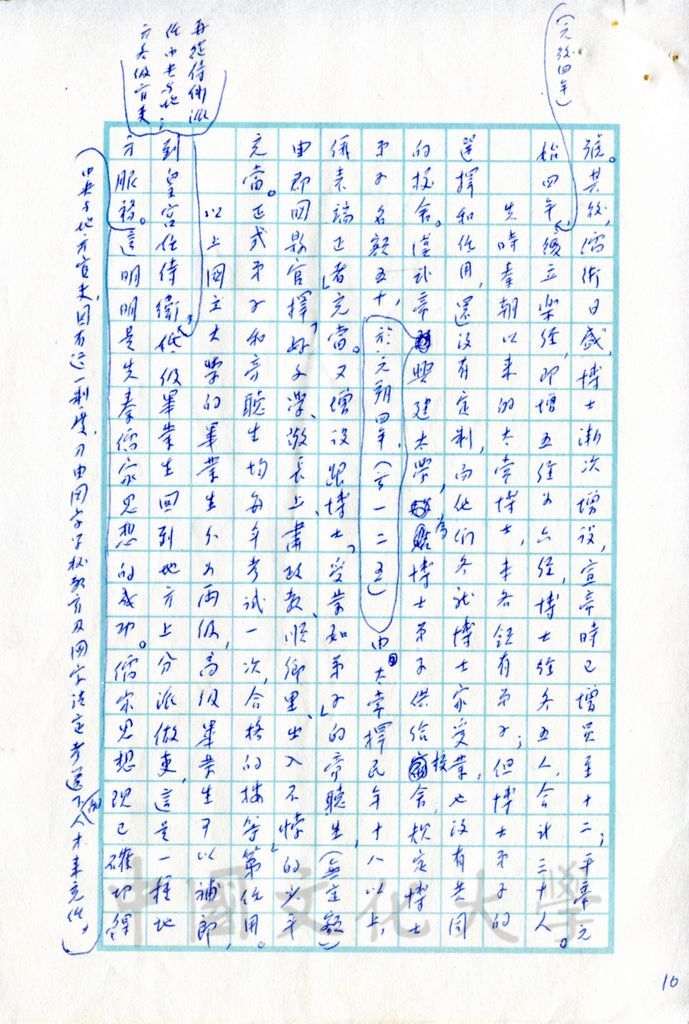 (元始四年)
號。其後,儒術日盛,博士漸次增設,宣帝時已增員至十二;平帝元
始四年,復立樂經,即增五經為六經,博士經各五人,合計三十人。
先時秦朝以來的太常博士,本各領有弟子;但博士弟子的
選擇和任用,還沒有定制,而他們各就博士家受業,也沒有共同
的校舍。漢武帝興建太學,為博士弟子供給校舍,規定博士
弟子名額五十,於元朔四年,(前一二五)由太常擇民年十八以上,
儀表端正者充當。又增設跟博士「受業如弟子」的旁聽生,(無定額)
由郡國縣官擇「好文學、敬長上、肅政教、順鄉里、出入不悖」的少年
充當。正式弟子和旁聽生均每年考試一次,合格的按等第任用。
以上國立大學的畢業生分為兩級,高級畢業生可以補郎,
到皇宮任侍衛,低級畢業生回到地方上分派做吏,這是一種地
再從侍衛派
任中央與地
方各級官吏
方服務。這明明是先秦儒家思想的成功。儒家思想現已確切得
中央與地方官吏,因有這一制度,乃由國家學校教育及國家法定考選下的人才來充任。
中國文化大學
10